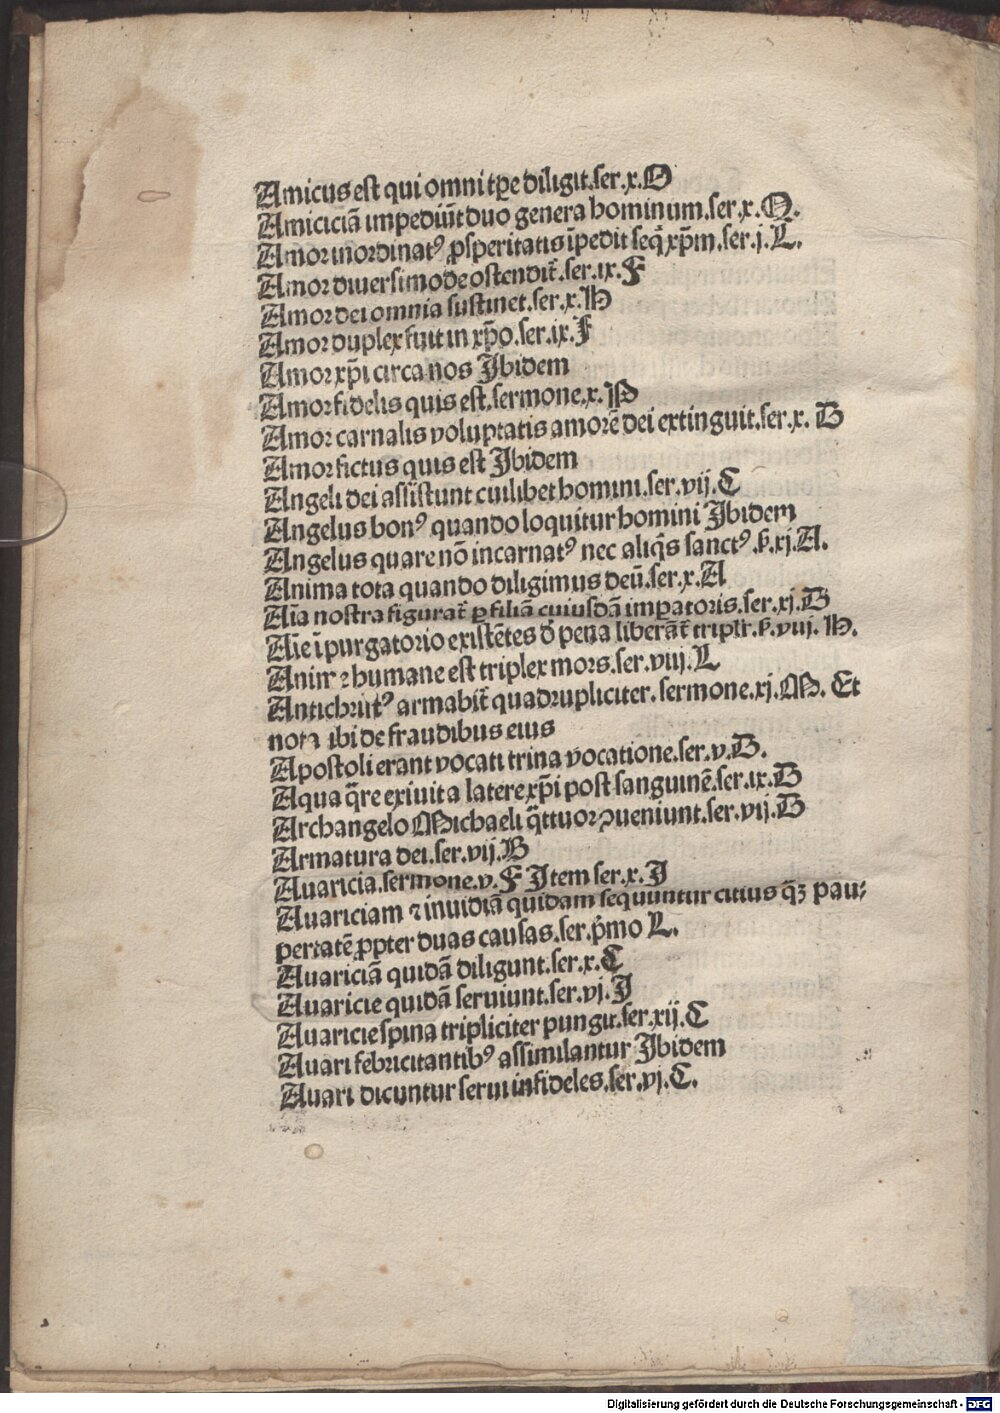 Amicus est qui omni tꝑe diligit.ser.x.O
Amiciciā impediūt duo genera hominum.ser.x.Q.
Amor inordinatꝰ ꝓsperitatis īpedit seq̄ xp̄m.ser.j.L.
Amor diuersimode ostendit̄.ser.ix.F
Amor dei omnia sustinet.ser.x.H
Amor duplex fuit in xp̄o.ser.ix.F
Amor xp̄i circa nos Ibidem
Amor fidelis quis est.sermone.x.P
Amor carnalis voluptatis amorē dei extinguit.ser.x. B
Amor fictus quis est Ibidem
Angeli dei assistunt cuilibet homini.ser.vij.C
Angelus bonꝰ quando loquitur homini Ibidem
Angelus quare nō incarnatꝰ nec aliq̄s sanctꝰ.ẜ.xj.A.
Anima tota quando diligimus deū.ser.x.A
Aīa nostra figurat̄ ꝑ filiā cuiusdā imꝑatoris.ser.xj.B
Aīe ī purgatorio existētes d̄ pena liberāt̄ triplr̄.ẜ.viij. H.
Anime humane est triplex mors.ser.viij.L
Antichristꝰ armabit̄ quadrupliciter. sermone.xj.M. Et
nota ibi de fraudibus eius
Apostoli erant vocati trina vocatione.ser.v.B.
Aqua q̄re exiuit a latere xp̄i post sanguinē.ser.ix.B
Archangelo Michaeli q̄ttuor ꝯueniunt.ser.vij.B
Armatura dei.ser.vij.B
Auaricia.sermone.v.F Item ser.x.I
Auariciam ⁊ inuidiā quidam sequuntur citius q̄ꝫ pau⸗
pertatē ꝓpter duas causas.ser.p̄mo L.
Auariciā quidā diligunt.ser.x.C
Auaricie quidā seruiunt.ser.vj.I
Auaricie spina tripliciter pungit.ser.xij.C
Auari febricitantibꝰ assimilantur Ibidem
Auari dicuntur serui infideles.ser.vj.C.
Digitalisierung gefördert durch die Deutsche Forschungsgemeinschaft - DFG